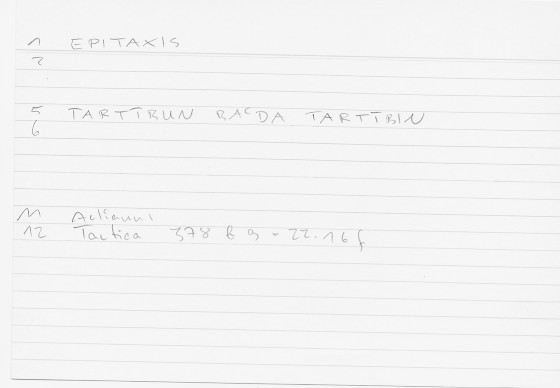 1 EPITAXIS
2
5 TARTTBUN BAꟲDA TARTTBIN
6
11 Aeliani
12 Tactica 378 b 9 - 22.16 f